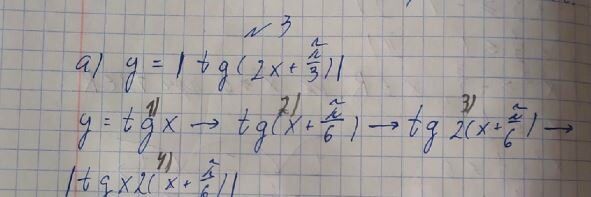 № 3
а) y = | tg ( 2x + π/3 ) |
y = tg x → tg ( x + π/6 ) → tg 2( x + π/6 ) →
1) 2) 3)
4)
| tg x 2( x + π/6 ) |